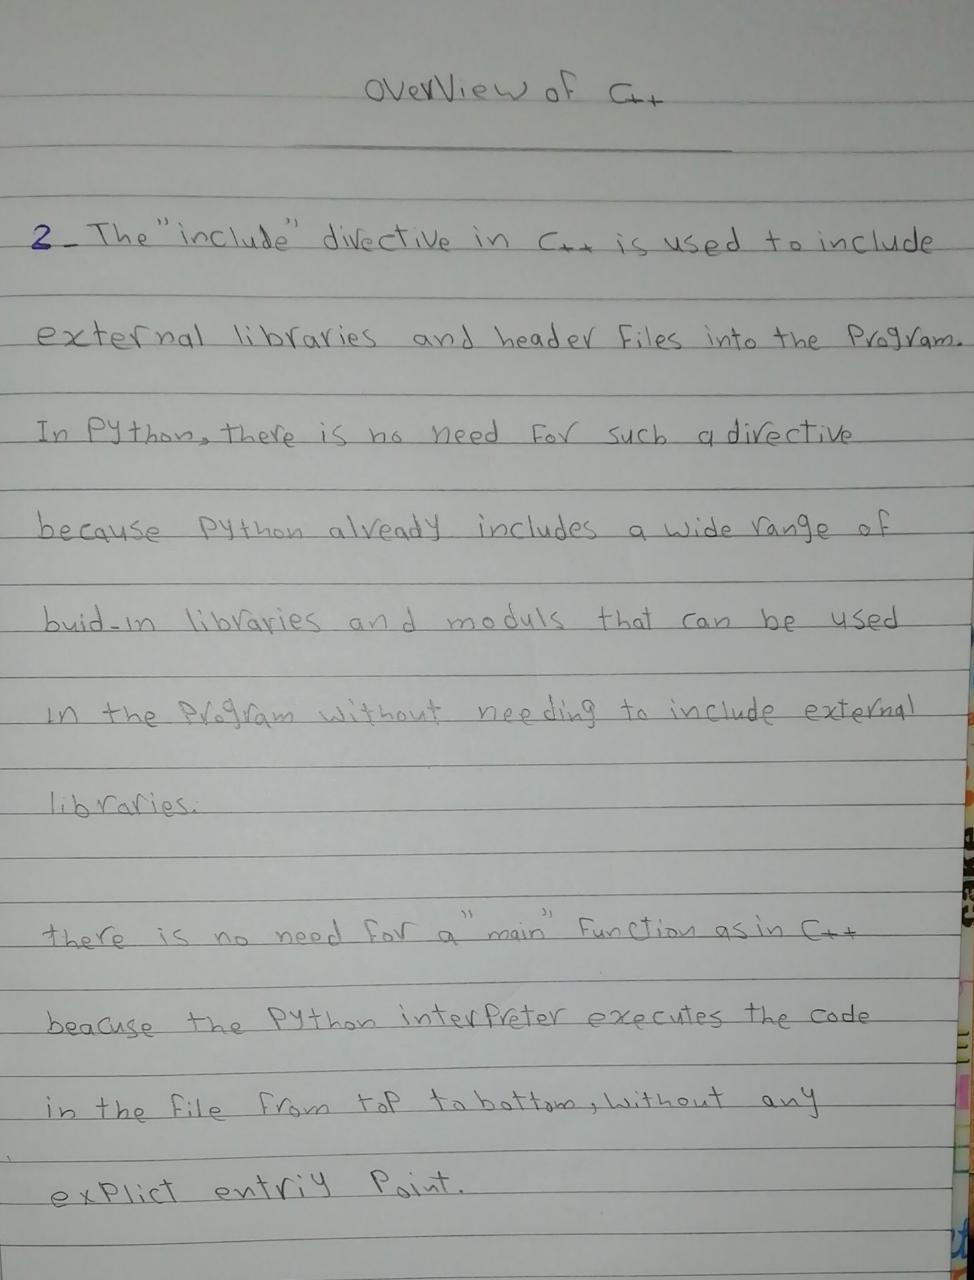 OverView of C++
2- The "include" directive in C++ is used to include
external libraries and header files into the Program.
In Python, there is no need For such a directive
because Python already includes a wide range of
buid-in libraries and moduls that can be used
in the Program without needing to include external
libraries.
there is no need for a "main" Function as in C++
beacuse the Python interpreter executes the code
in the file from top to bottom, without any
explict entriy Point.